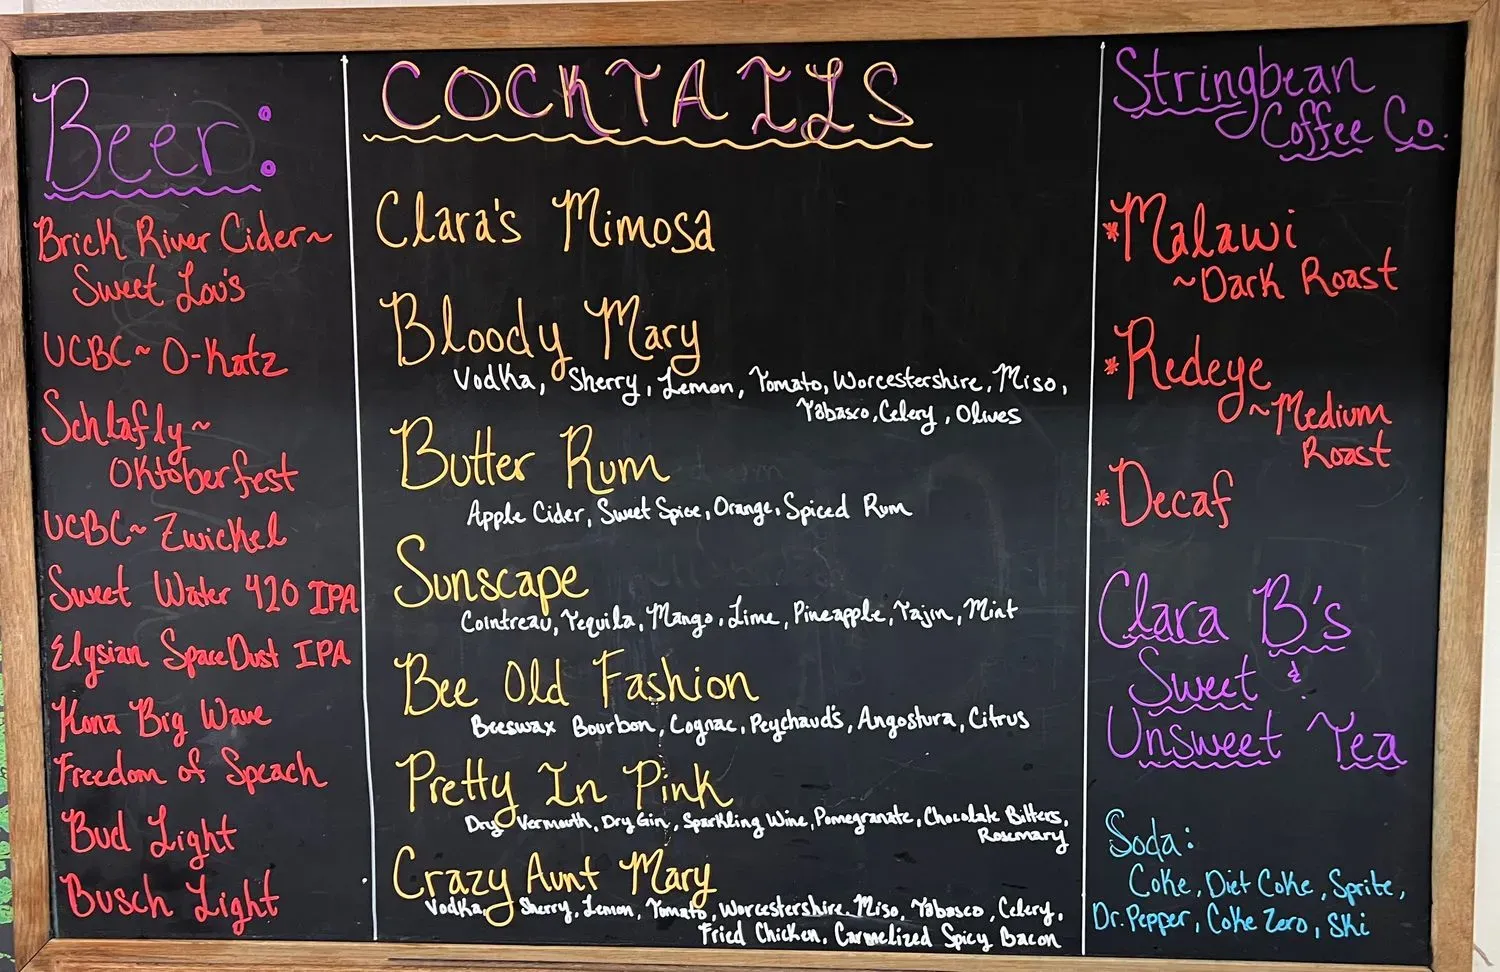 Beer:
Brick River Cider~
Sweet Lou's
UCBC~ O-Katz
Schlafly~
Oktoberfest
UCBC~ Zwickel
Sweet Water 420 IPA
Elysian SpaceDust IPA
Kona Big Wave
Freedom of Speach
Bud Light
Busch Light
COCKTAILS
Clara's Mimosa
Bloody Mary
Vodka, Sherry, Lemon, Tomato, Worcestershire, Miso,
Tabasco, Celery, Olives
Butter Rum
Apple Cider, Sweet Spice, Orange, Spiced Rum
Sunscape
Cointreau, Tequila, Mango, Lime, Pineapple, Tajin, Mint
Bee Old Fashion
Beeswax Bourbon, Cognac, Peychaud's, Angostura, Citrus
Pretty In Pink
Dry Vermouth, Dry Gin, Sparkling Wine, Pomegranate, Chocolate Bitters,
Rosemary
Crazy Aunt Mary
Vodka, Sherry, Lemon, Tomato, Worcestershire, Miso, Tabasco, Celery,
Fried Chicken, Carmelized Spicy Bacon
Stringbean
Coffee Co.
*Malawi
~Dark Roast
*Redeye
~Medium
Roast
*Decaf
Clara B's
Sweet &
Unsweet Tea
Soda:
Coke, Diet Coke, Sprite,
Dr. Pepper, Coke Zero, Ski